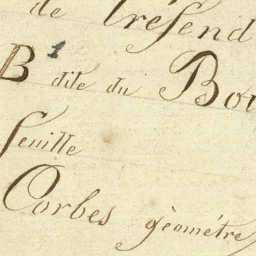 de Présend
B 1 dite du Bou
feuille
Corbes géométre